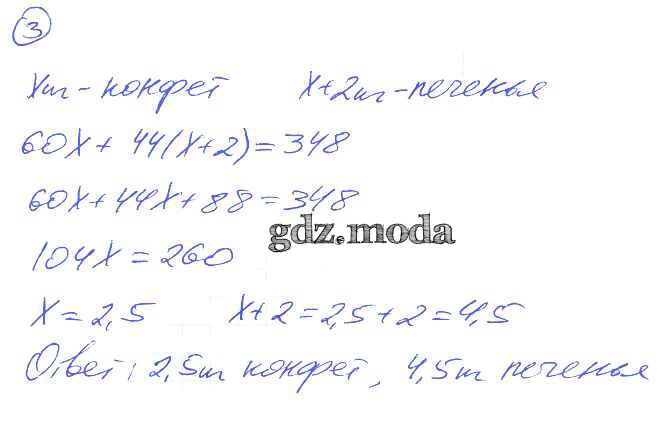 3
x кг - конфет x+2 кг - печенья
60x + 44(x+2) = 348
60x + 44x + 88 = 348
gdz.moda
104x = 260
x = 2,5 x+2 = 2,5+2 = 4,5
Ответ: 2,5 кг конфет, 4,5 кг печенья